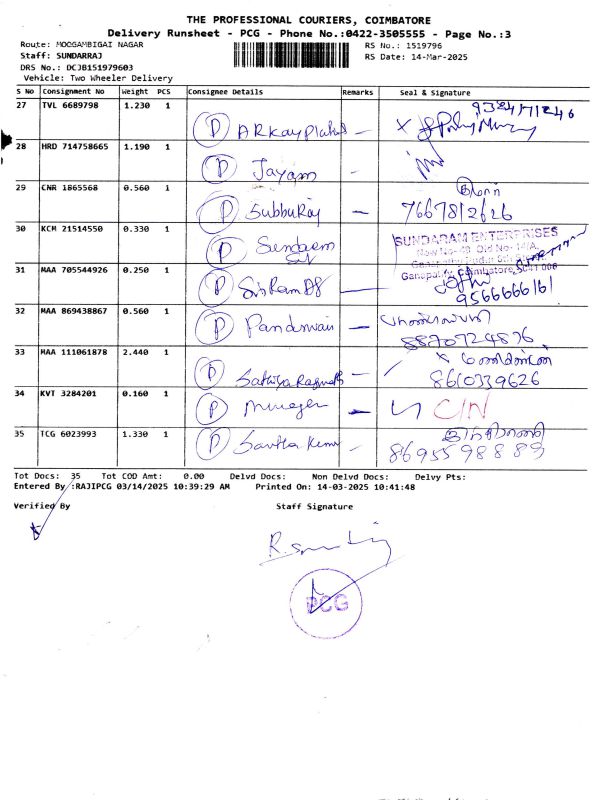 THE PROFESSIONAL COURIERS, COIMBATORE
Delivery Runsheet - PCG - Phone No.:0422-3505555 - Page No.:3
Route: MOOGAMBIGAI NAGAR
RS No.: 1519796
Staff: SUNDARRAJ
RS Date: 14-Mar-2025
DRS No.: DCJB151979603
Vehicle: Two Wheeler Delivery
S No Consignment No Weight PCS Consignee Details Remarks Seal & Signature
27 TVL 6689798 1.230 1 D
28 HRD 714758665 1.190 1 D Jayam
29 CNR 1865568 0.560 1 D Subburaj 7667812626
30 KCM 21514550 0.330 1 D SUNDARAM ENTERPRISES
31 MAA 705544926 0.250 1 D 9566666161
32 MAA 869438867 0.560 1 D
33 MAA 111061878 2.440 1 D 8610339626
34 KVT 3284201 0.160 1 D C/N
35 TCG 6023993 1.330 1 D
Tot Docs: 35 Tot COD Amt: 0.00 Delvd Docs: Non Delvd Docs: Delvy Pts:
Entered By :RAJIPCG 03/14/2025 10:39:29 AM Printed On: 14-03-2025 10:41:48
Verified By Staff Signature
PCG